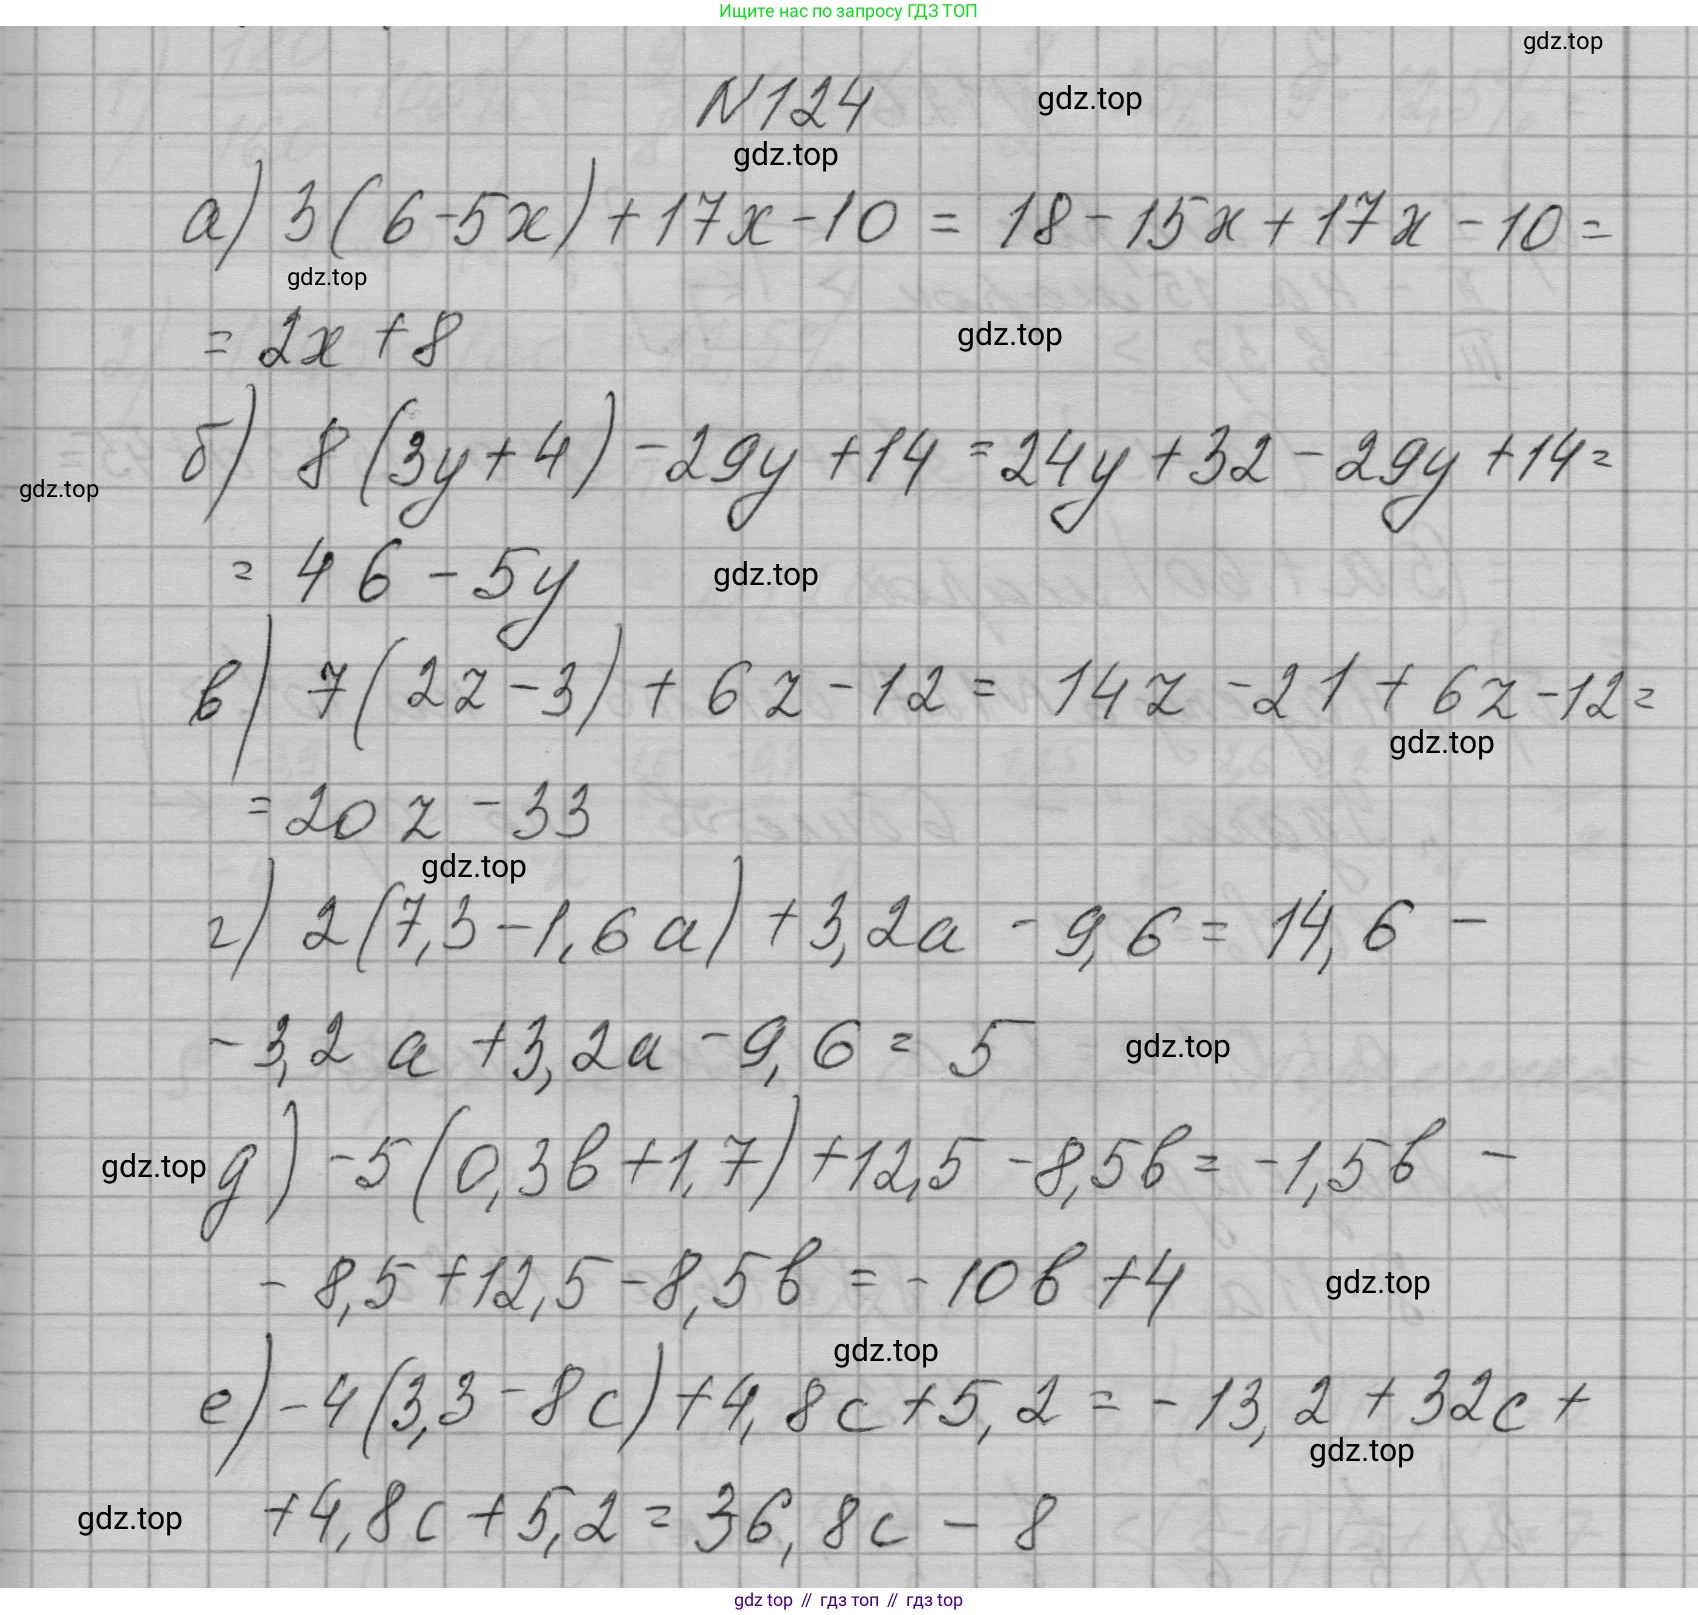 Ищите нас по запросу ГДЗ ТОП
gdz.top
N124
gdz.top
gdz.top
а) 3(6-5x)+17x-10 = 18-15x+17x-10=
gdz.top
= 2x+8
gdz.top
б) 8(3y+4)-29y+14=24y+32-29y+14=
gdz.top
= 46-5y
gdz.top
в) 7(2z-3)+6z-12= 14z-21+6z-12=
gdz.top
=20z-33
gdz.top
г) 2(7,3-1,6a)+3,2a-9,6=14,6-
-3,2a+3,2a-9,6=5
gdz.top
gdz.top
д) -5(0,3b+1,7)+12,5-8,5b=-1,5b-
-8,5+12,5-8,5b=-10b+4
gdz.top
gdz.top
е) -4(3,3-8c)+4,8c+5,2=-13,2+32c+
gdz.top
gdz.top
+4,8c+5,2=36,8c-8
gdz top // гдз топ // гдз top